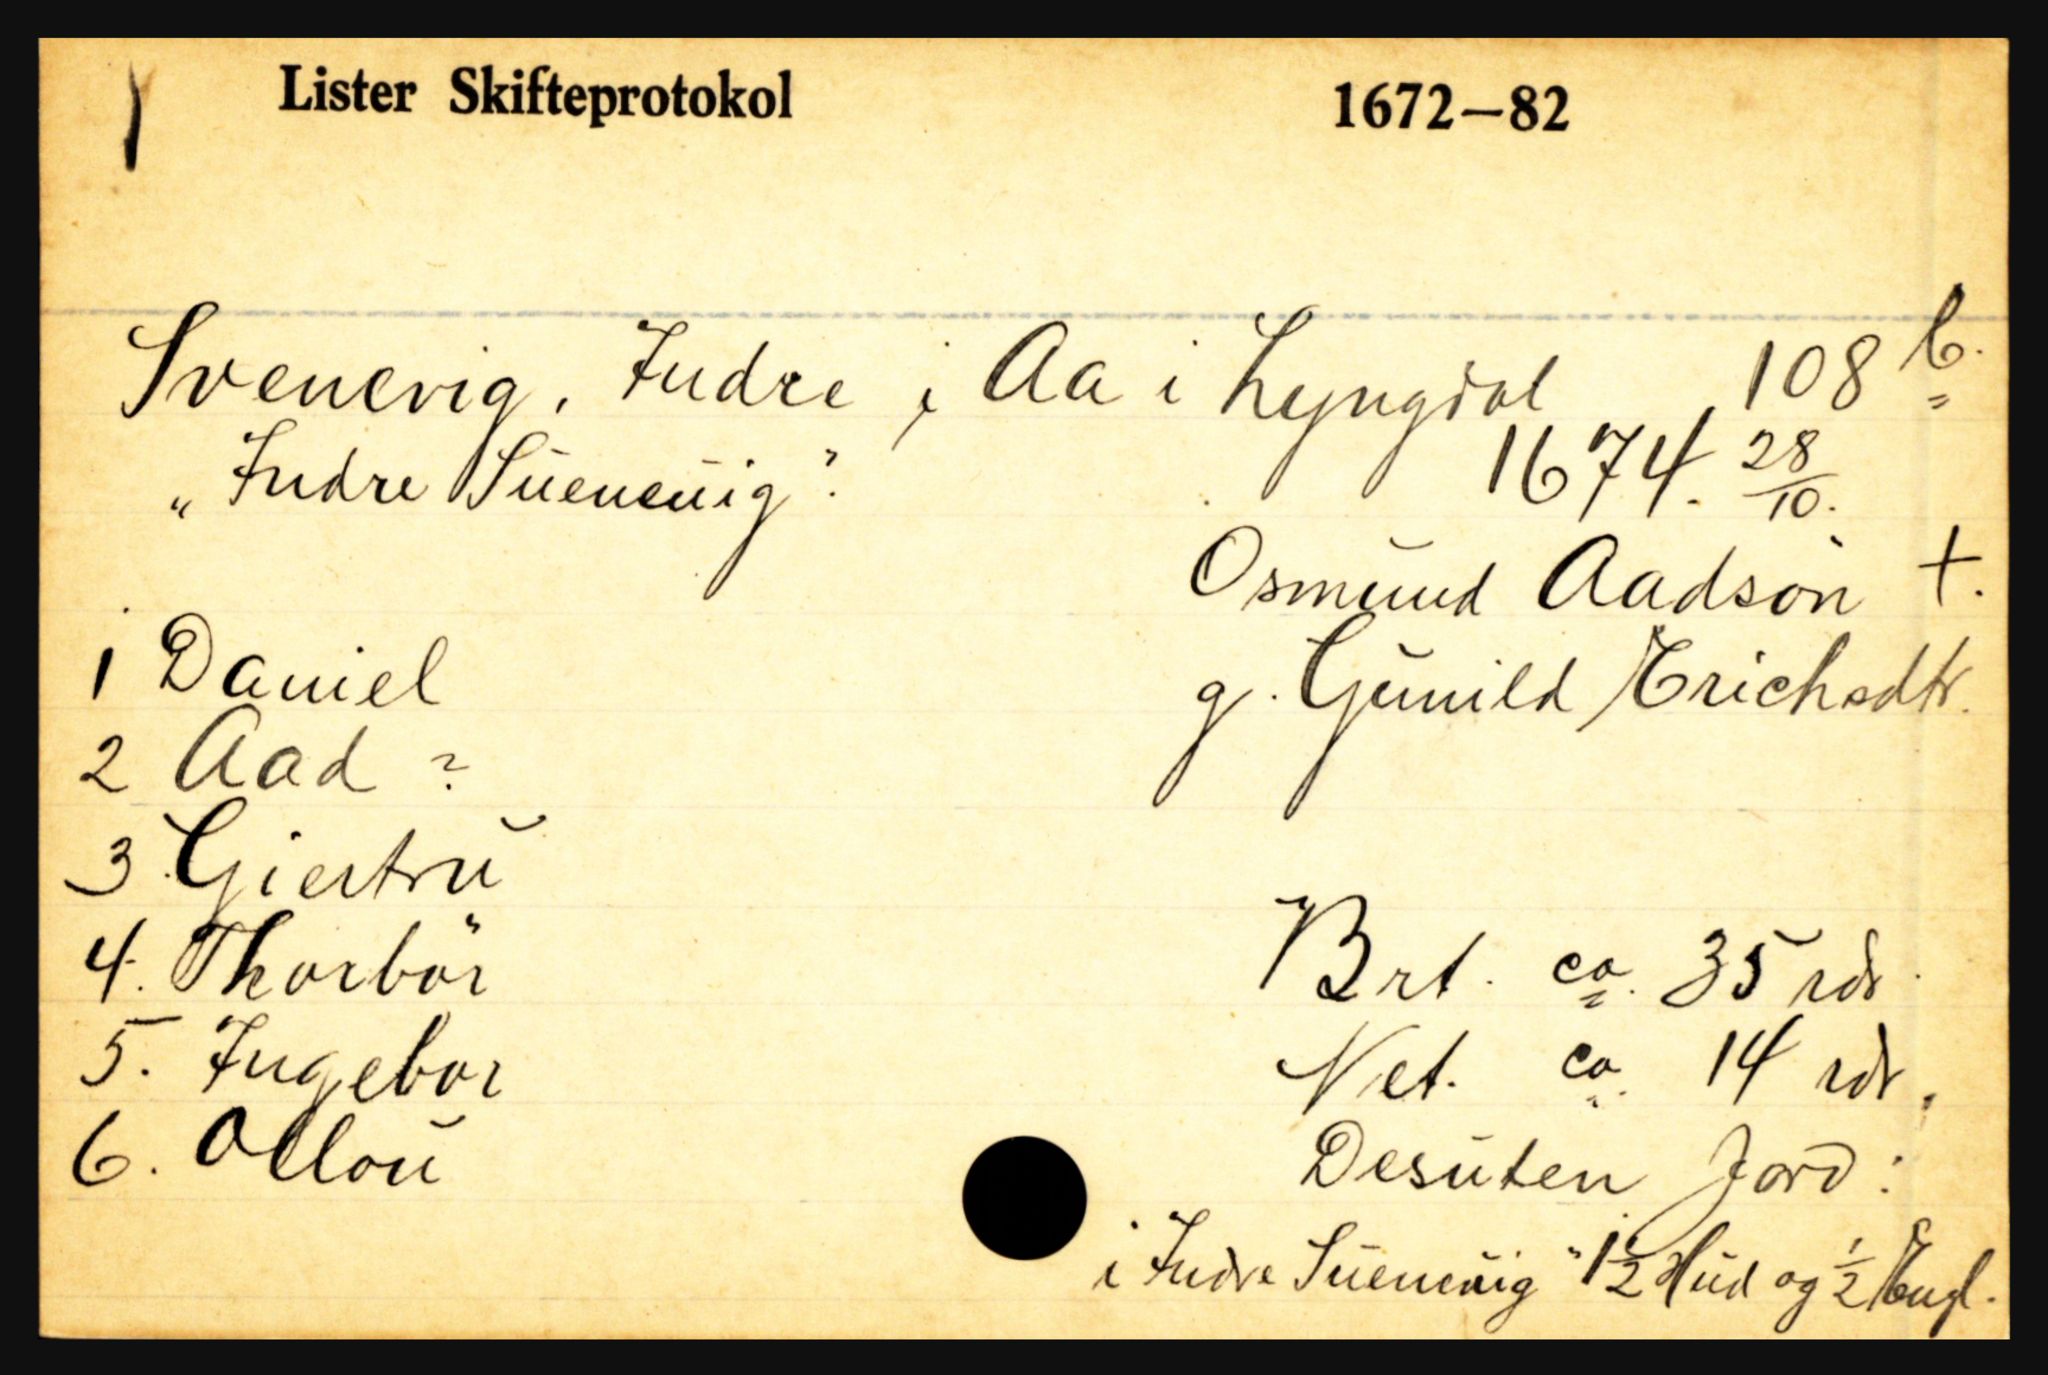 Lister Skifteprotokol 1672—82
Svenevig, Indre i Aa i Lyngdal 108 b.
„Indre Suenevig". 1674. 28/10.
Osmund Aadsön +.
1 Daniel
g. Gunild Erichsdtr.
2 Aad ?
3 Giertru
4. Thorbör
Brt. ca. 35 rdr.
5. Ingebor
Net. ca. 14 rdr.
6. Ollou
Desuten Jord:
i Indre Suenevig" 1½ Hud og ½ Engl.